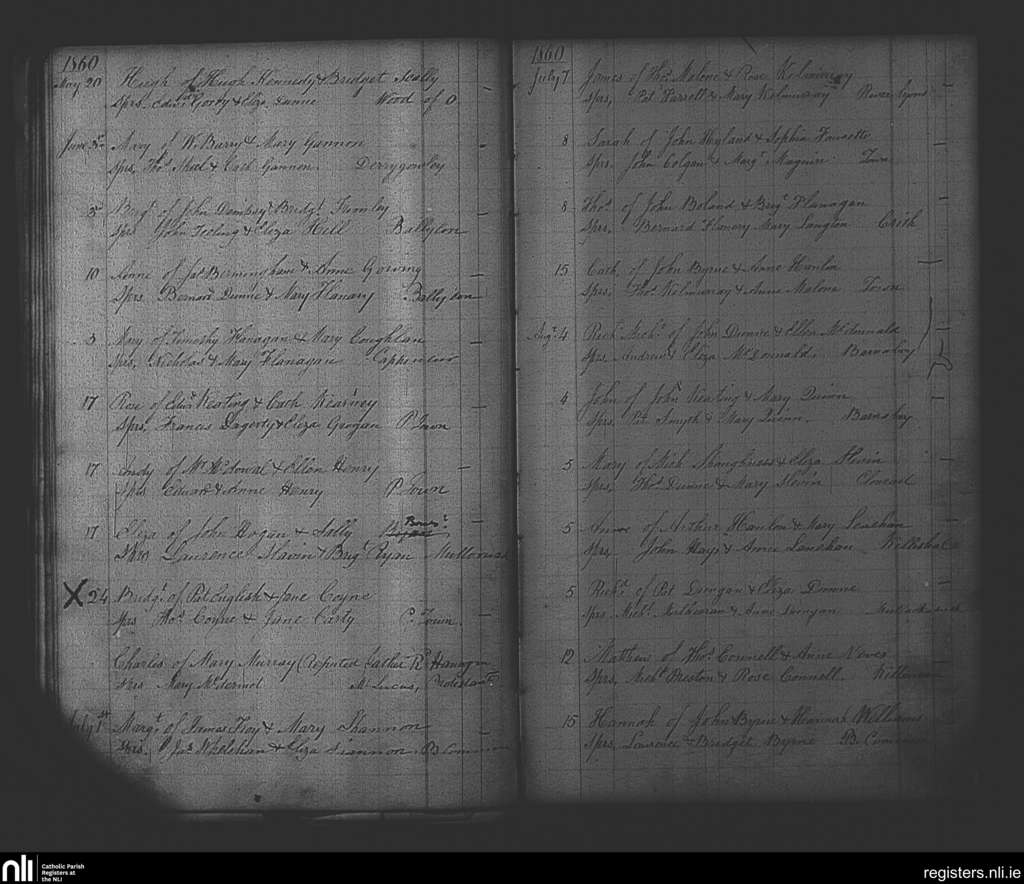 1860
May 20 Hugh of Hugh Kennedy & Bridget Scally
Sprs. Edwd Gorry & Eliza Dunne Wood of O
June 3rd Mary of Wm Barry & Mary Gannon
Sprs, Thos Shiel & Cath Gannon. Derrygooley
3rd Bridgt of John Dempsey & Bridgt
Sprs John Feeling & Eliza Hill Ballylon
10 Anne of Jas Bermingham & Anne Gorving
Sprs. Bernard Dunne & Mary Flanary
3 Mary of Timothy Flanagan & Mary Coughlan
Sprs, Nicholas & Mary Flanagan
17 Rose of Edwd Keating & Cath Kearney
Sprs. Francis & Eliza P. Town
17 Andy of Mr McDowal & Ellen Henry
Sprs Edward & Anne Henry P. Town
17 Eliza of John Hogan & Sally
Sprs Laurence Slavin & Brigt Ryan
X 24 Bridgt. of Pat English & Jane Coyne
Sprs Thos Coyne & Jane Carty P. Town.
Charles of Mary Murray (Reputed Father Rd
Sprs. Mary McDermot McLucas, Protestants
July 1st Margt. of James Troy & Mary Shannon
Sprs. Jas Wheelehan & Eliza Shannon. B Common
1860
July 7 James of Thos. Malone & Rose Kilmurray
Sprs, Pat Farrell & Mary Kilmurray
8 Sarah of John Hyland & Sophia Fawcette
Sprs. John Colgan & Margt Maguire Town
8 Thos. of John Boland & Brigt Flanagan
Sprs. Bernard Flanery Mary Langton
15 Cath. of John Byrne & Anne Hanlon
Sprs. Thos. Kilmurray & Anne Malone Town
Augt. 4 Michl. of John Dunne & Ellen McDonnald
Sprs. Andrew & Eliza McDonnald. Barnaboy
4 John of Jno Keating & Mary Quinn
Sprs. Pat Smyth & Mary Quinn. Barnaboy
5 Mary of Mich Shaughness & Eliza Slevin
Sprs. Thos. Dunne & Mary Slevin
5 Anne of Arthur Hanlon & Mary
Sprs. John Hays & Anne
5 Richd. of Pat Dungan & Eliza Dunne
Sprs. Michl. & Anne Dungan
12 Matthew of Thos. Connell & Anne
Sprs, Michl. Preston & Rose Connell.
15 Hannah of John Byrne & Hannah Williams
Sprs, Laurence & Bridget Byrne B. Common
nli
Catholic Parish
Registers at
the NLI
registers.nli.ie